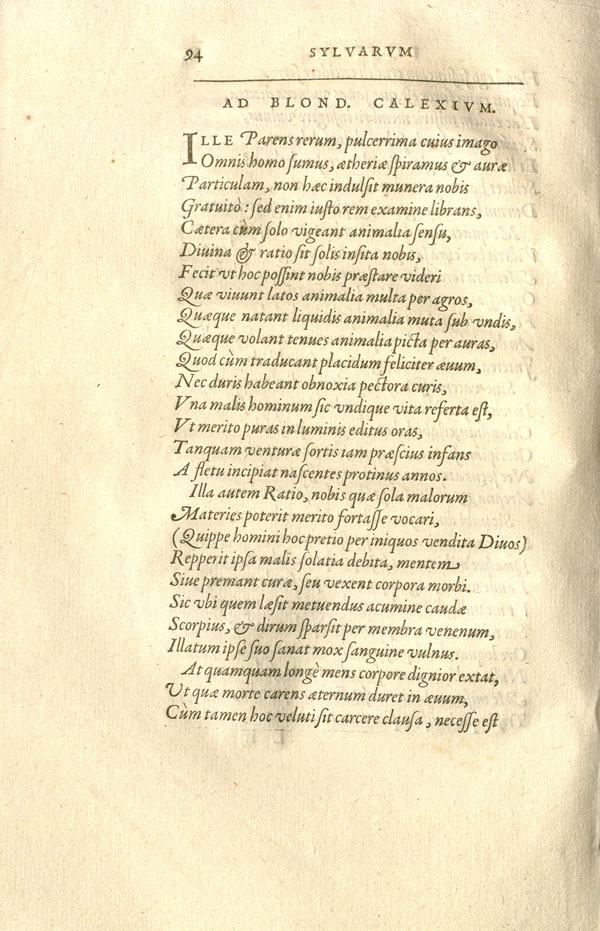 94 SYLVARVM
AD BLOND. CALEXIVM.
ILLE Parens rerum, pulcerrima cuius imago
Omnis homo sumus, ætheriæ spiramus & auræ
Particulam, non hæc indulsit munera nobis
Gratuitò: sed enim iusto rem examine librans,
Cætera cùm solo vigeant animalia sensu,
Diuina & ratio sit solis insita nobis,
Fecit vt hoc possint nobis præstare videri
Quæ viuunt latos animalia multa per agros,
Quæque natant liquidis animalia muta sub vndis,
Quæque volant tenues animalia picta per auras,
Quod cùm traducant placidum feliciter æuum,
Nec duris habeant obnoxia pectora curis,
Vna malis hominum sic vndique vita referta est,
Vt merito puras in luminis editus oras,
Tanquam venturæ sortis iam præscius infans
A fletu incipiat nascentes protinus annos.
Illa autem Ratio, nobis quæ sola malorum
Materies poterit merito fortasse vocari,
(Quippe homini hoc pretio per iniquos vendita Diuos)
Repperit ipsa malis solatia debita, mentem
Siue premant curæ, seu vexent corpora morbi.
Sic vbi quem læsit metuendus acumine caudæ
Scorpius, & dirum sparsit per membra venenum,
Illatum ipse suo sanat mox sanguine vulnus.
At quamquam longè mens corpore dignior extat,
Ut quæ morte carens æternum duret in æuum,
Cùm tamen hoc veluti sit carcere clausa, necesse est